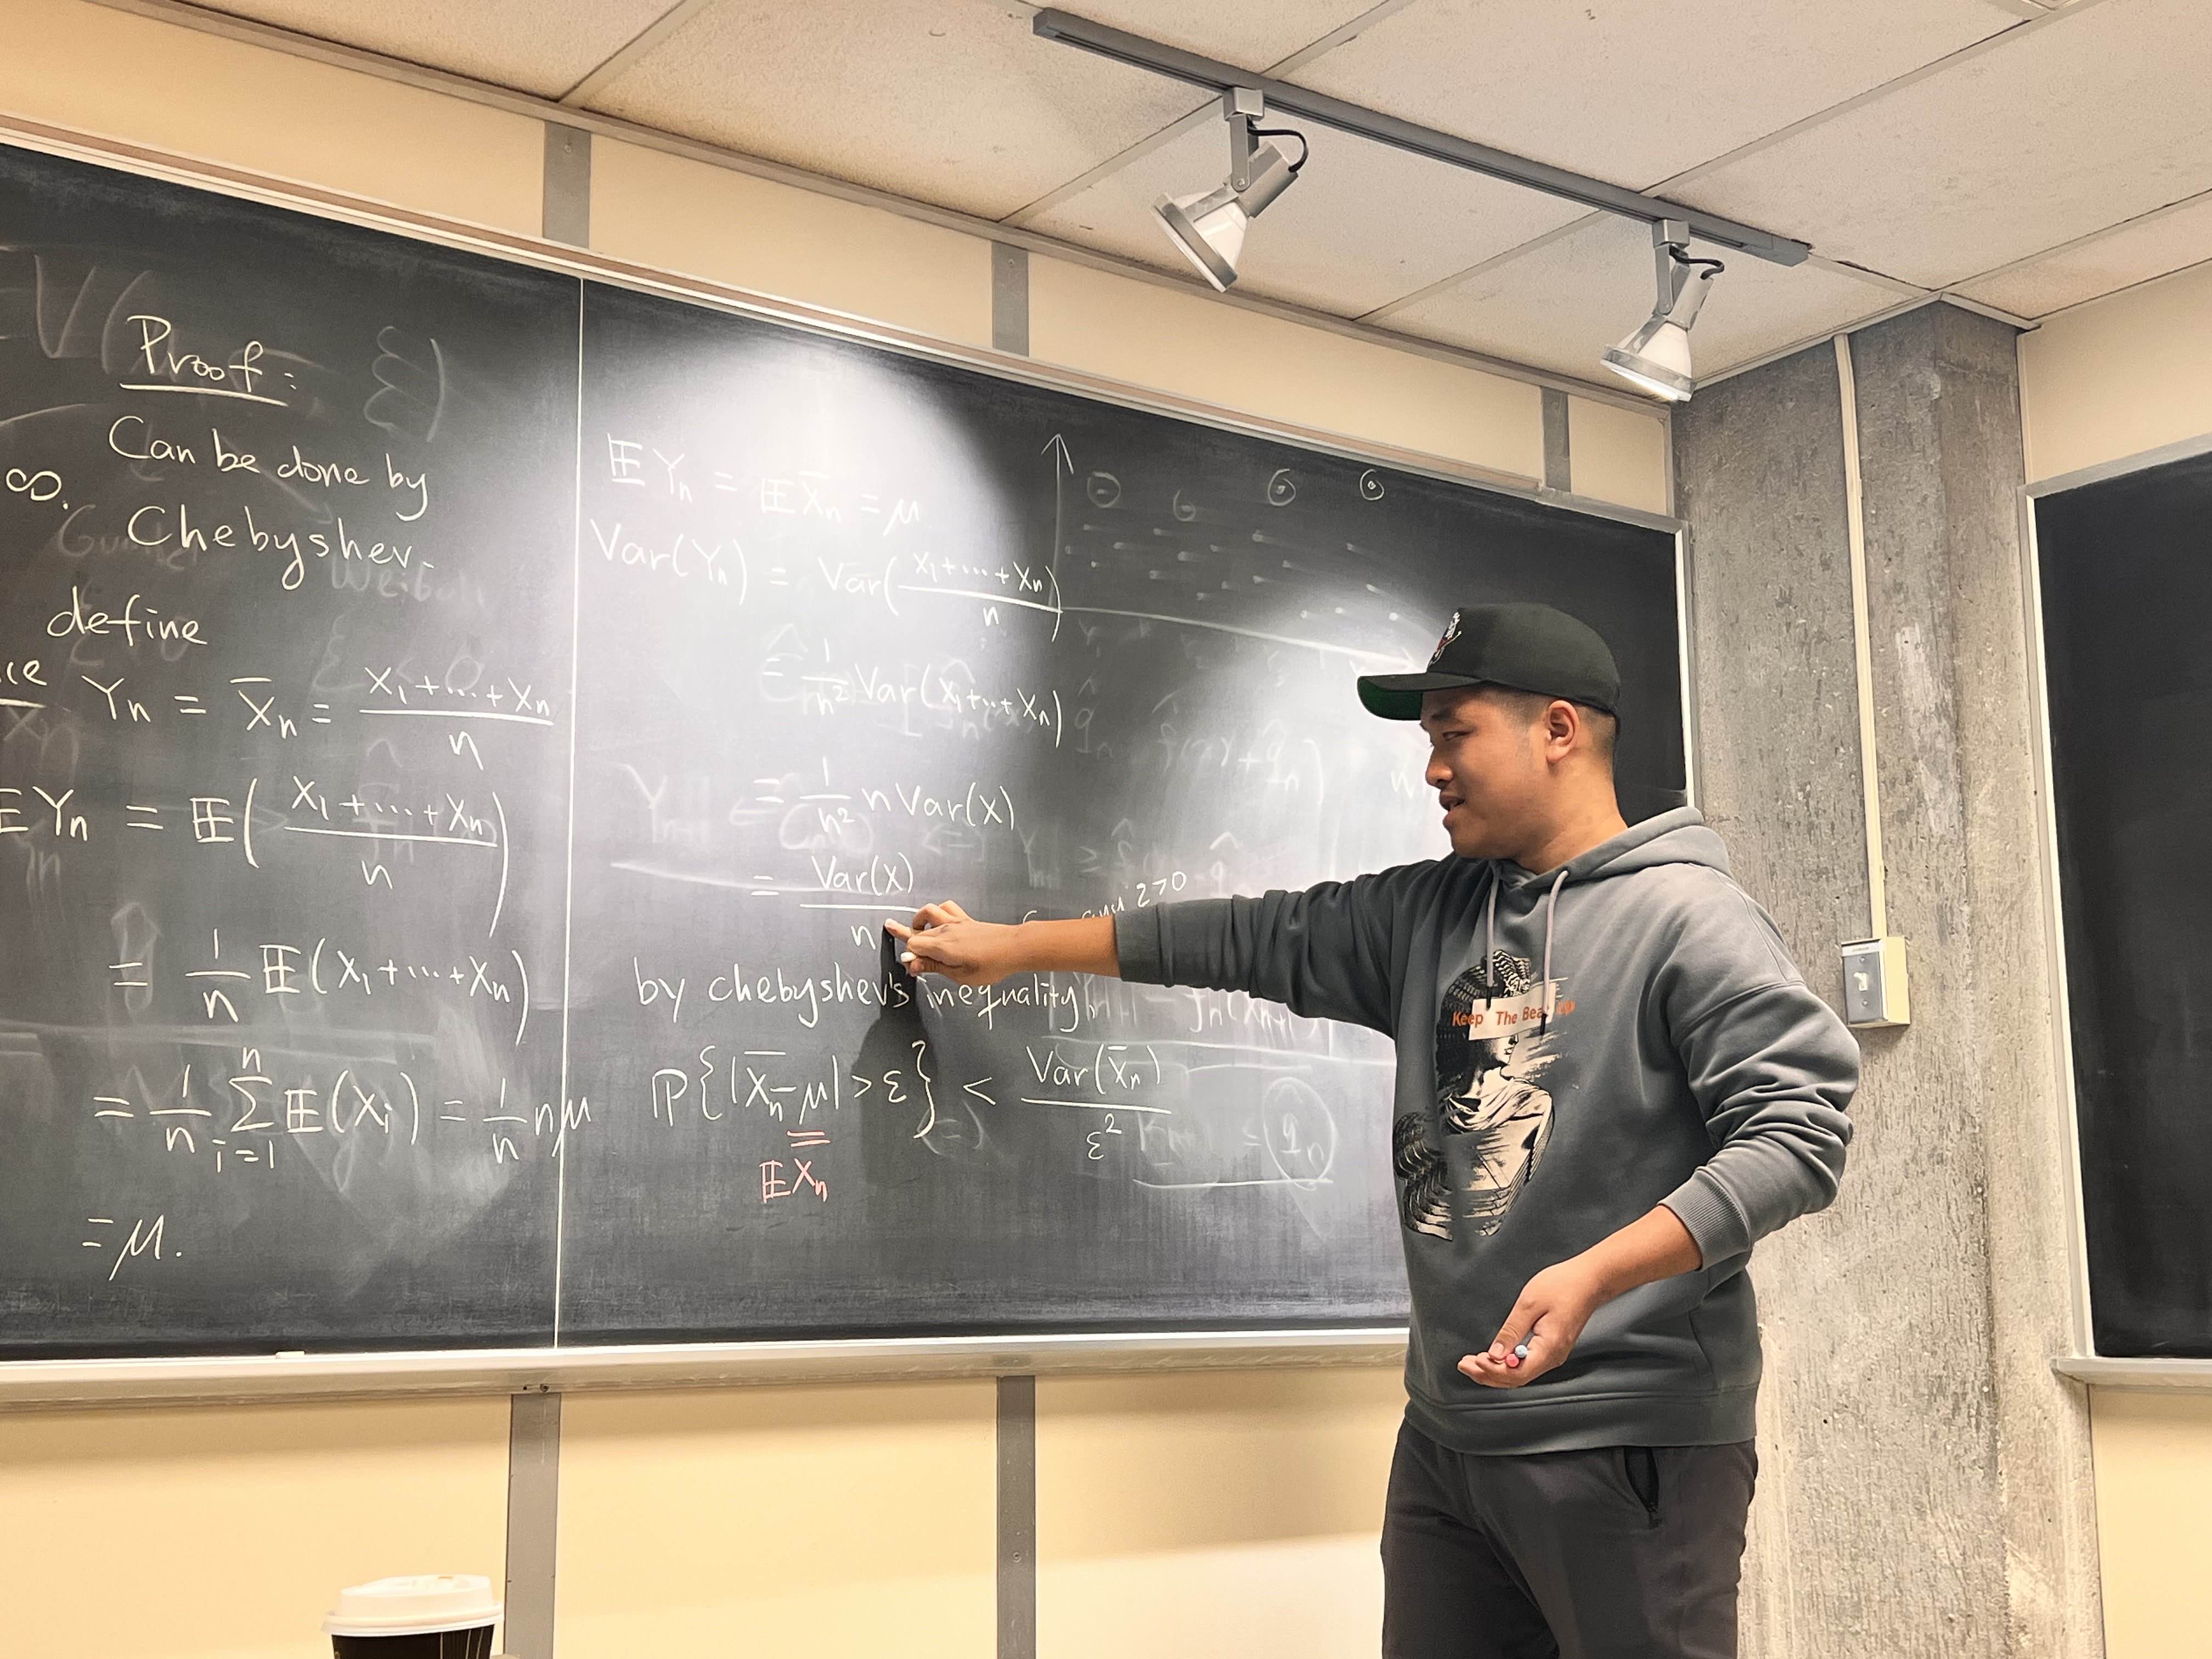 Proof:
Can be done by
∞.
Chebyshev.
define
Yn = X̄n = X1+...+Xn / n
EYn = E(X1+...+Xn / n)
= 1/n E(X1+...+Xn)
= 1/n Σ_{i=1}^{n} E(Xi) = 1/n nμ
= μ.
EYn = EX̄n = μ
Var(Yn) = Var(X1+...+Xn / n)
= 1/n² Var(X1+...+Xn)
= 1/n² n Var(X)
= Var(X) / n
by chebyshev's inequality
P{|X̄n-μ|>ε} < Var(X̄n) / ε²
=
EX̄n
Keep The Bea